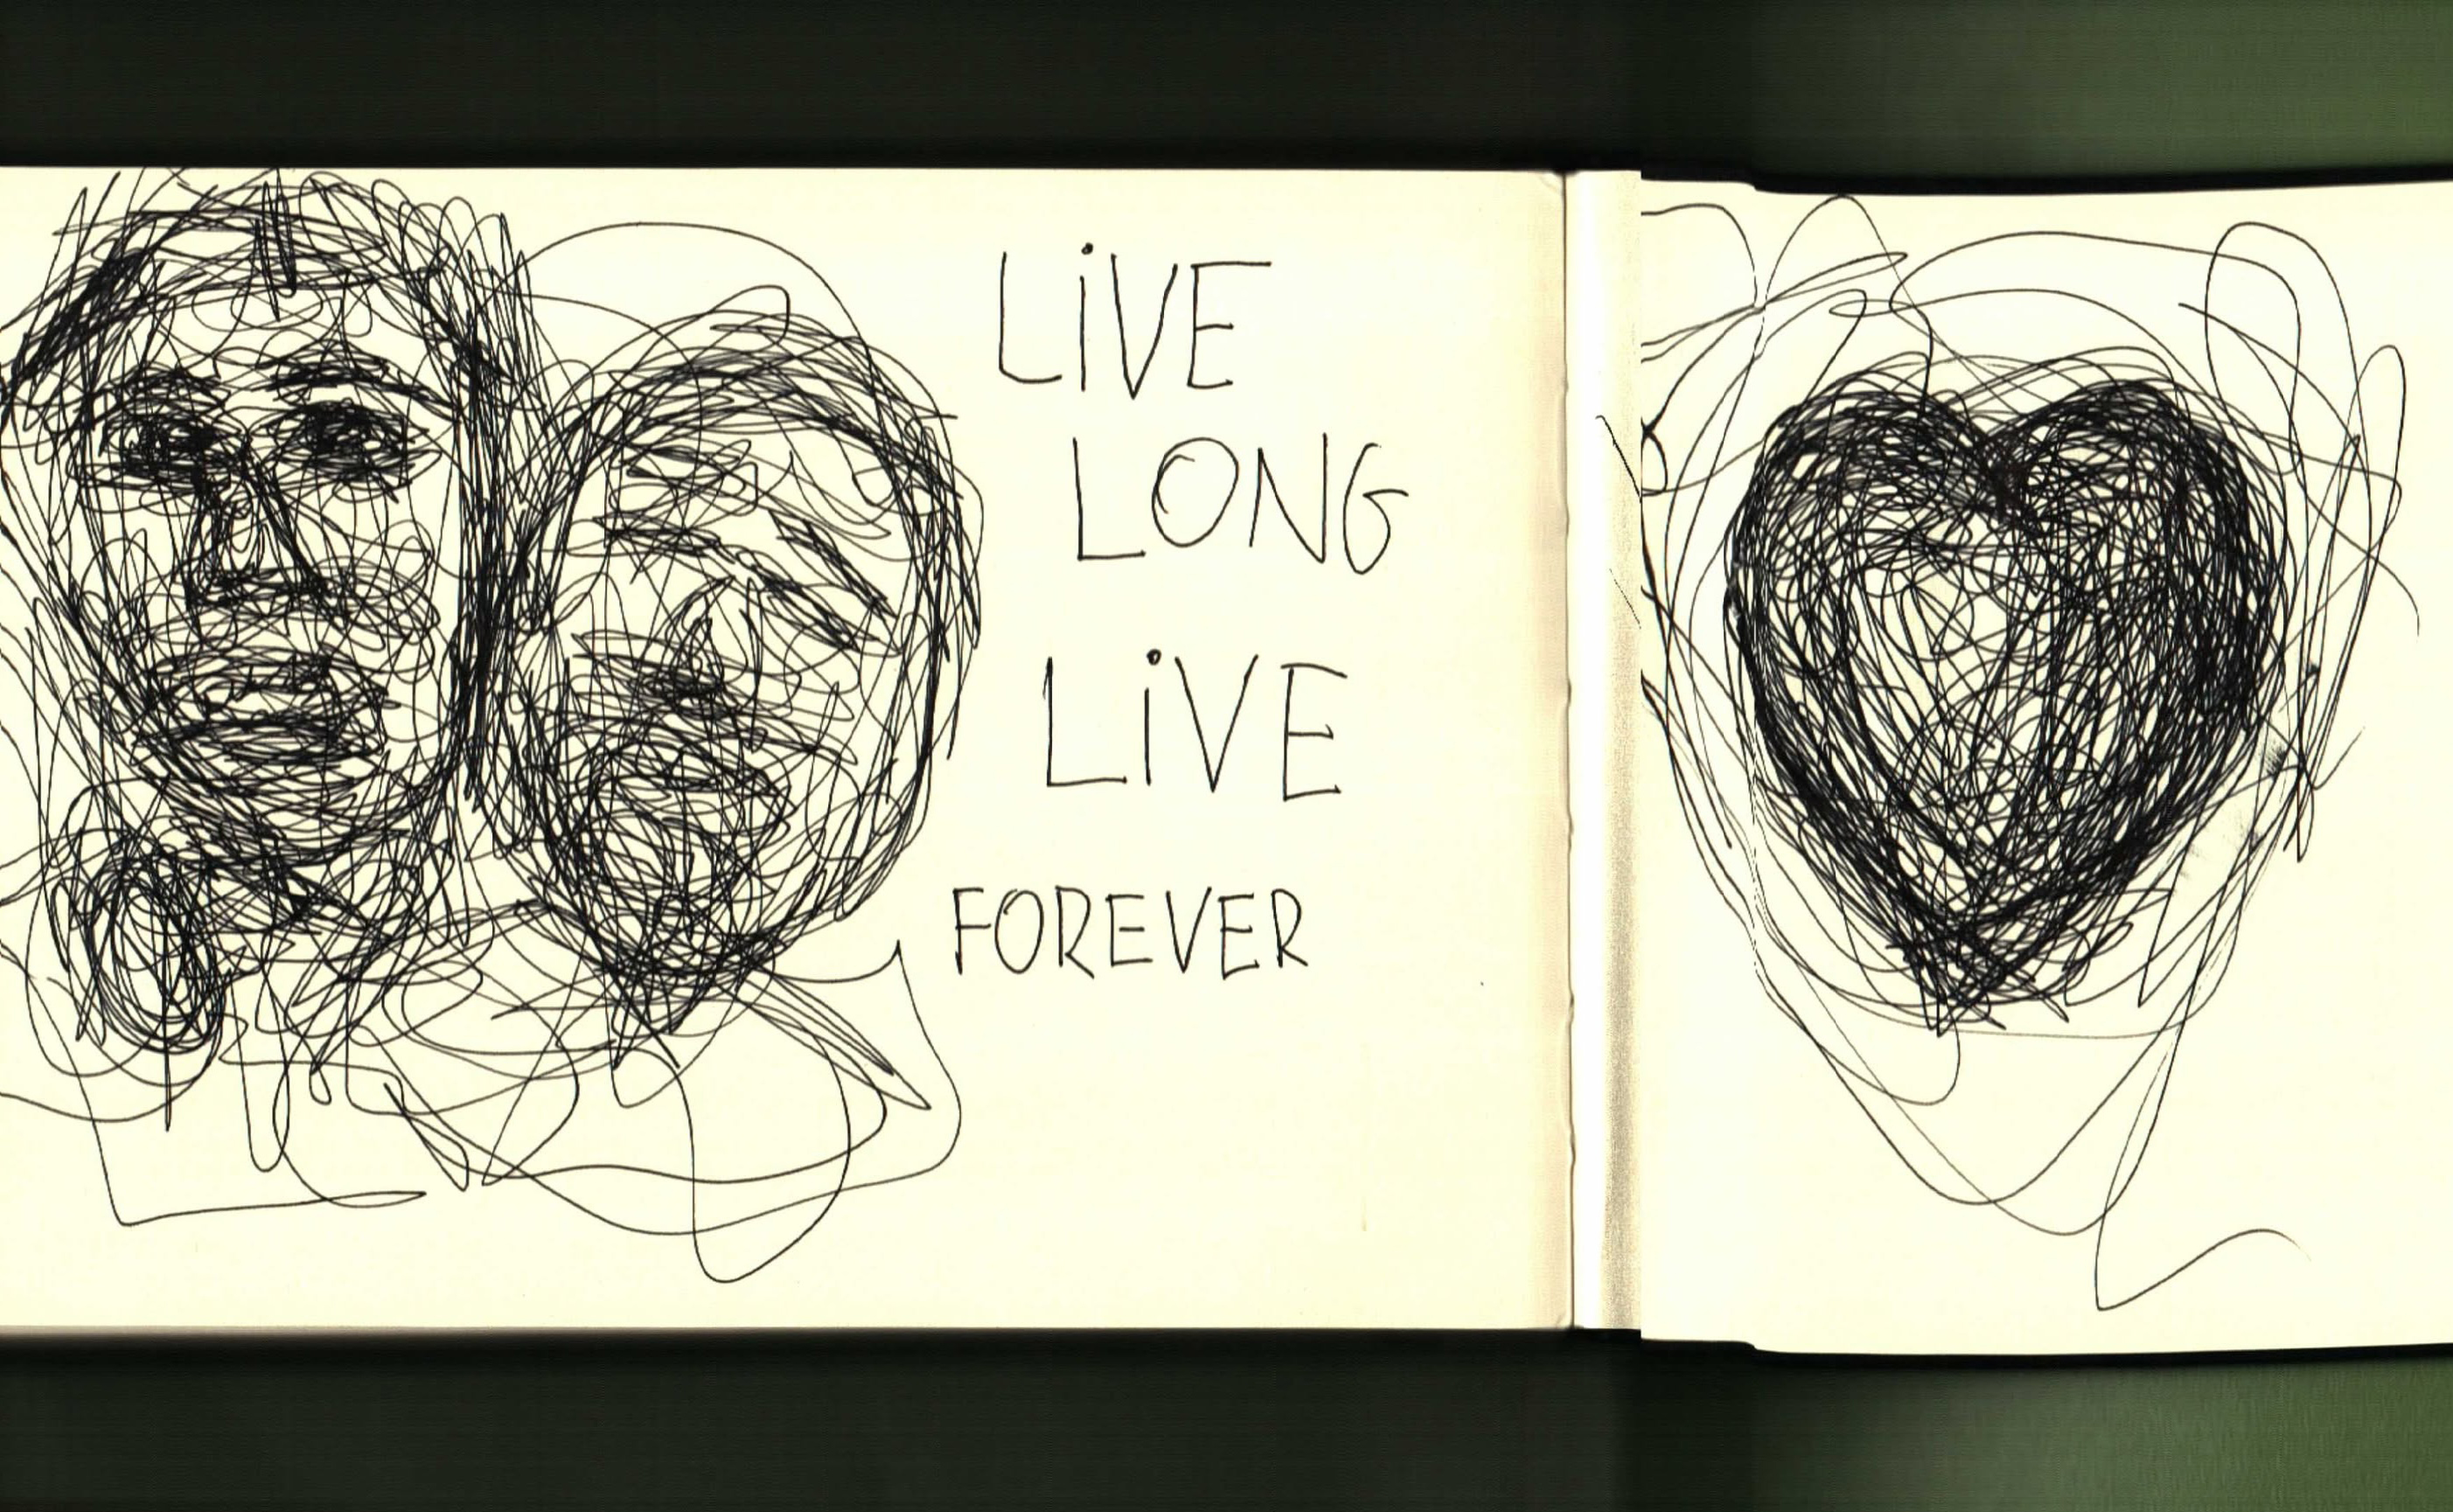 LiVE
LONG
LiVE
FOREVER